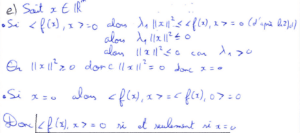 e) Soit x ∈ ℝⁿ
• Si <f(x), x> = 0 alors λ₁ ||x||² ≤ <f(x), x> = 0 (d'après
alors λ₁ ||x||² ≤ 0
alors ||x||² ≤ 0 car λ₁ > 0
Or ||x||² ≥ 0 donc ||x||² = 0 donc x = 0
• Si x = 0 alors <f(x), x> = <f(x), 0> = 0
Donc <f(x), x> = 0 si et seulement si x = 0